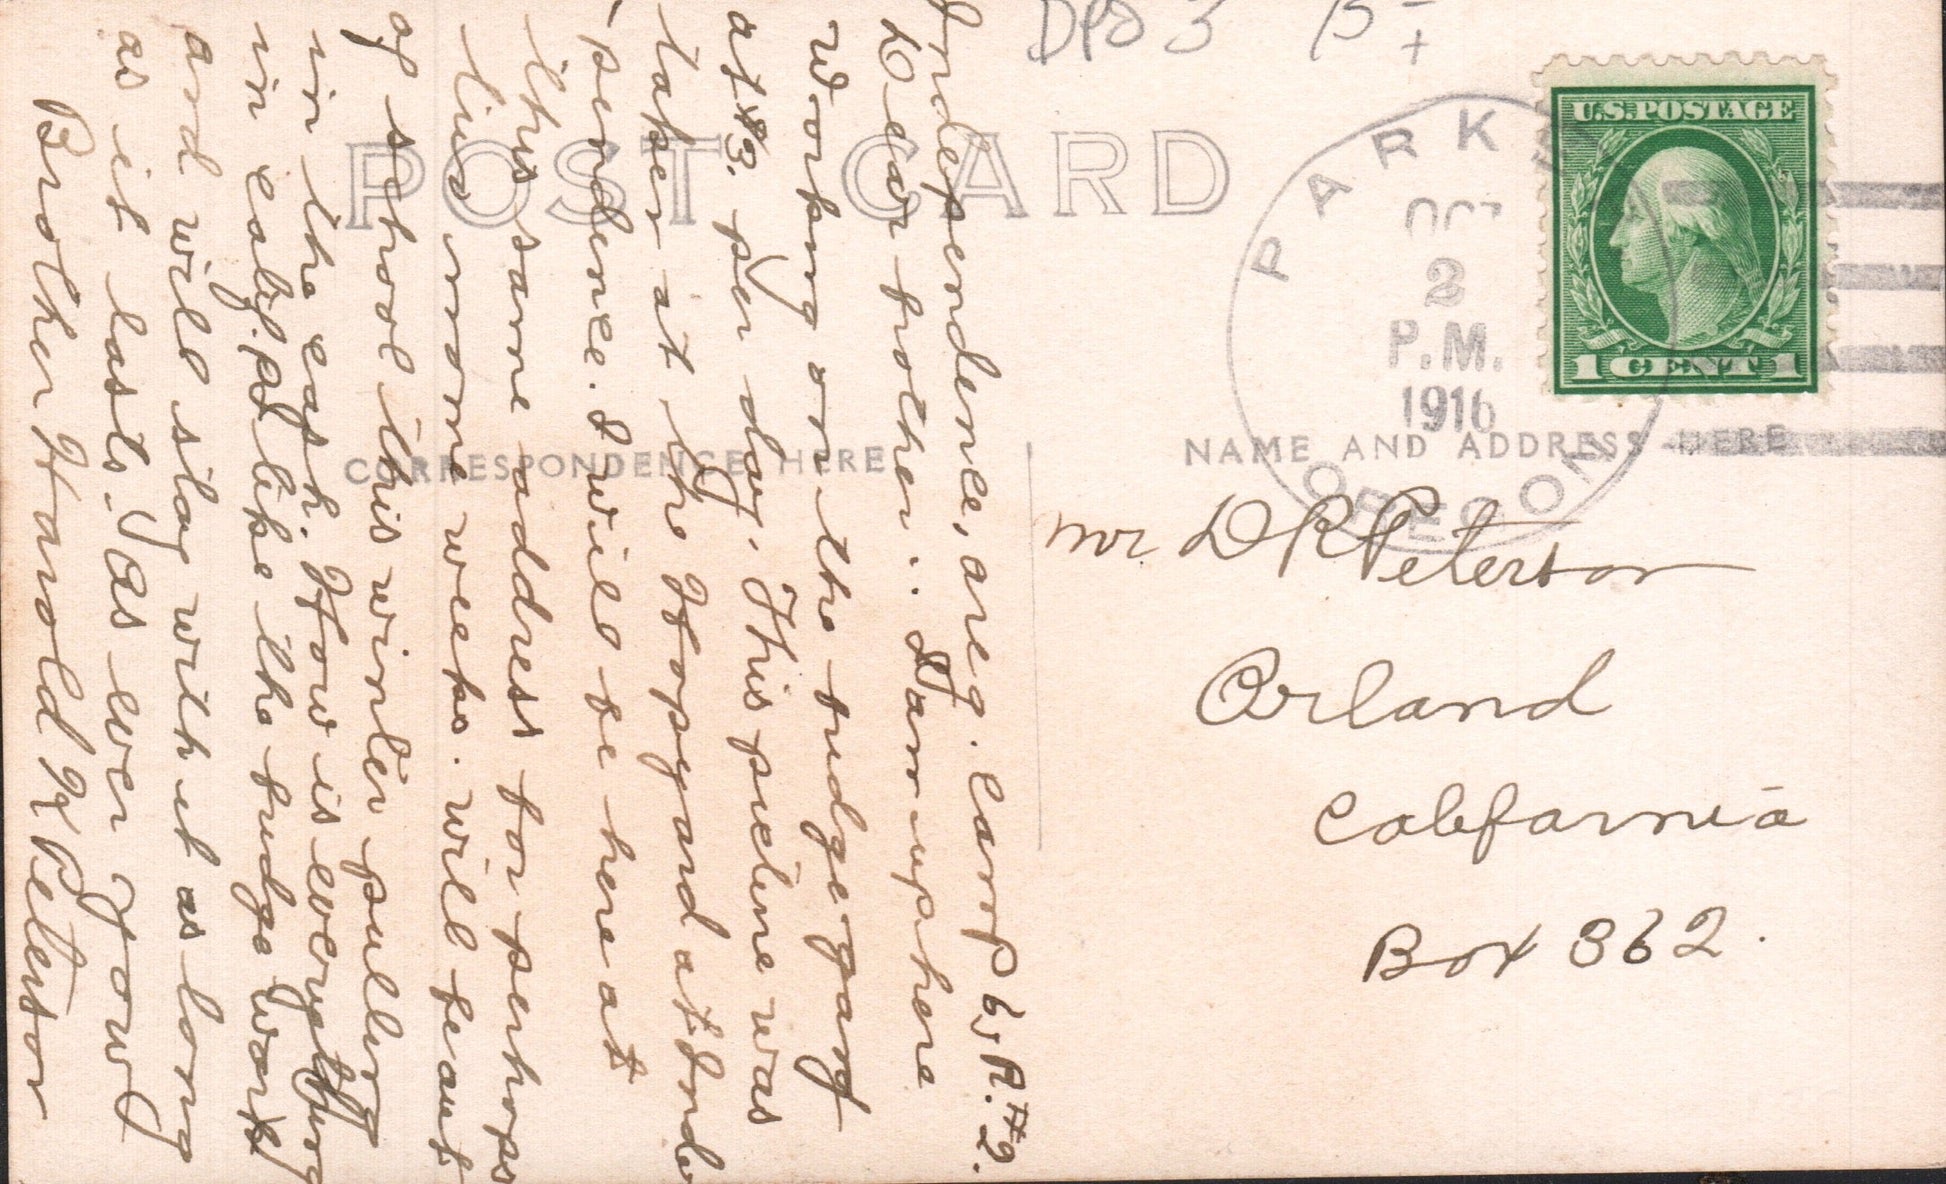 DPO 3 15-
+
U.S. POSTAGE
1 CENT 1
PARKS
OCT
2
P.M.
1916
OREGON
POST CARD
CORRESPONDENCE HERE
NAME AND ADDRESS HERE
Mr D R Peterson
Orland
California
Box 362.
Independence, Oreg. Camp 6, R.#2.
Dear brother:. I am up here
Working on the bridge gang
at $3. per day. This picture was
taken at the Hopyard at Inde-
pendence. I will be here at
this same address for perhops
two more weeks. Will be out
of school this winter pulling
in the cash. How is everything
in calif. I like the bridge work
and will stay with it as long
as it lasts. As ever your
Brother Harold K Peterson